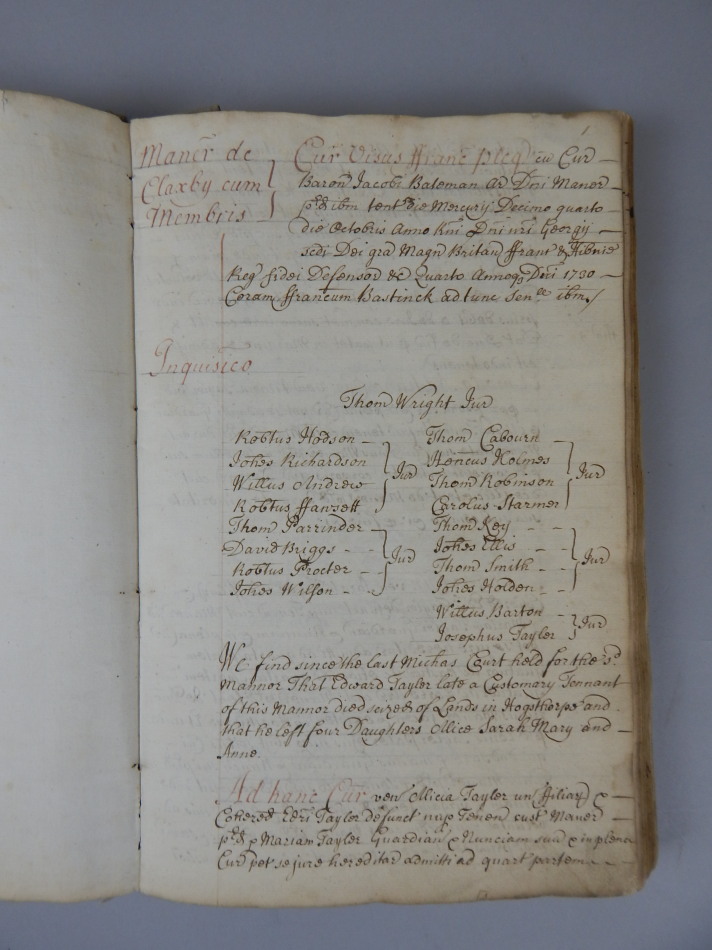 1
Maner de
Claxby cum
Membris
Cur Visus ffranc pleg cu Cur
Baron Jacobi Bateman Ar Dni Maner
p'd ibm tent die Mercurij Decimo quarto
die Octobris Anno Rni Dni nri Georgij
scdi Dei gra Magn Britan ffranc & Hibnie
Reg fidei Defensor &c Quarto Annoq Dni 1730
Coram ffrancum Bastinck adtunc Sen ibm
Inquisico
Thom Wright Jur
Robtus Hodson
Johes Richardson
Willus Andrew
Robtus ffawsett
Jur
Thom Parrinder
David Briggs
Robtus Procter
Johes Wilson
Jur
Thom Cabourn
Hencus Holmes
Thom Robinson
Carolus Starmer
Jur
Thom Key
Johes Ellis
Thom Smith
Johes Holden
Jur
Willus Barton
Josephus Tayler
Jur
We find since the last Michas Court held for the sd
Mannor That Edward Tayler late a Customary Tennant
of this Mannor died seized of Lands in Hogsthorpe and
that he left four Daughters Allice Sarah Mary and
Anne.
Ad hanc Cur ven Alicia Tayler un ffiliar &
Cohered Edri Tayler defunct nup Tenen cust Maner
p'd p Mariam Tayler Guardian & Nunciam sua & in plena
Cur pet se jure hereditar admitti ad quart partem